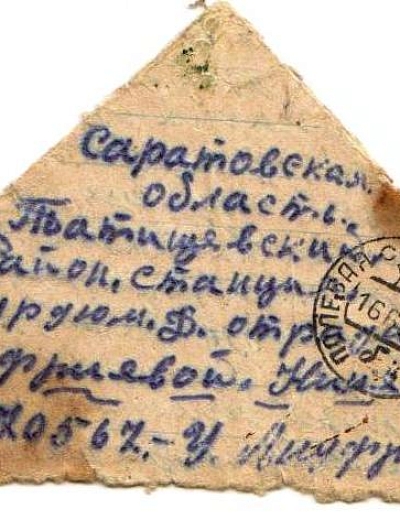 Саратовская.
область.,
Татищевский
район. станци
рдюм. Д. отр
фриевой. Нине
20567.- У. Анфр
ПОЛЕВАЯ